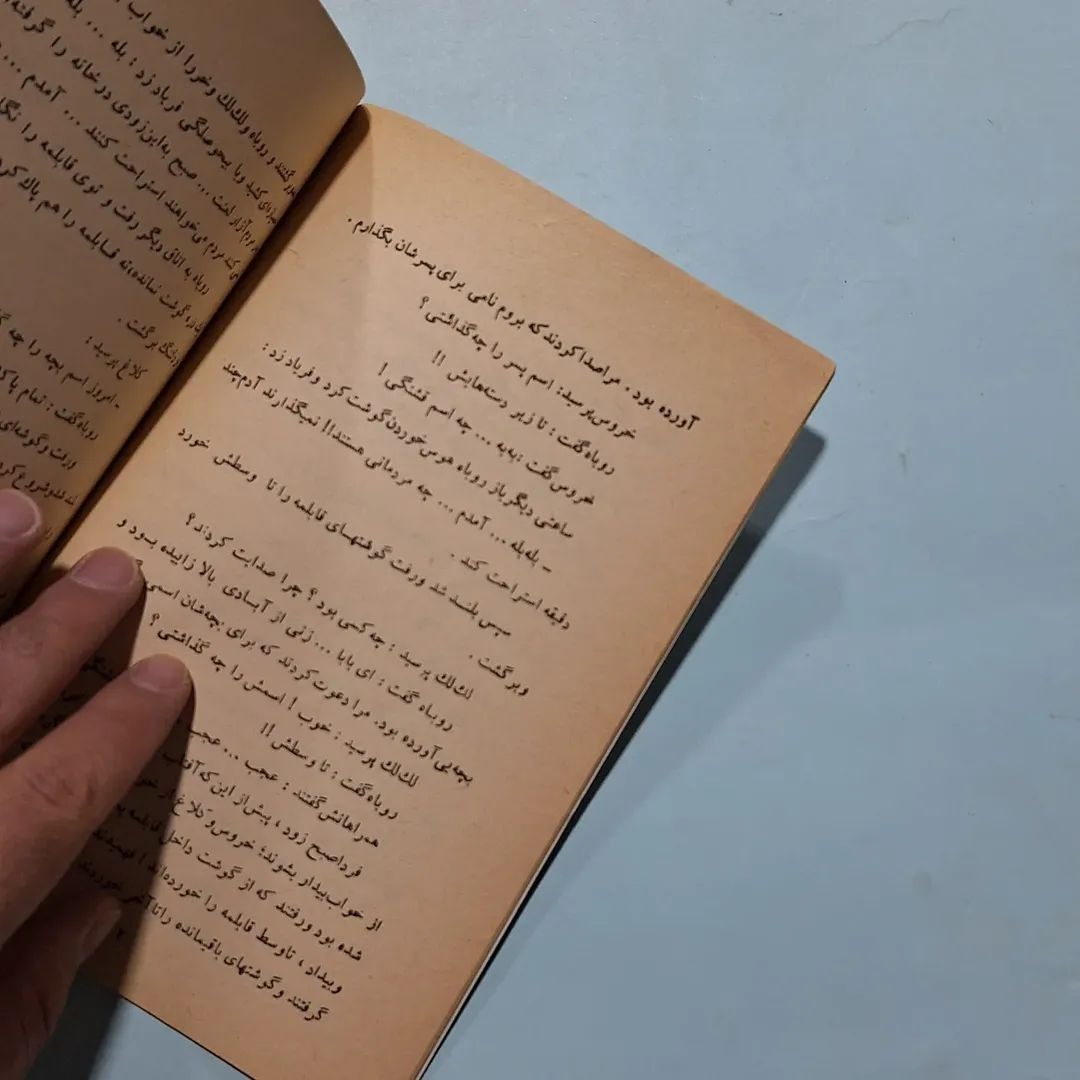 آورده بود. مرا صدا کردند که بروم نامی برای پسرشان بگذارم.
خروس پرسید: اسم پسر را چه گذاشتی؟
روباه گفت: تا زیر دسته‌هایش!!
خروس گفت: به‌به... چه اسم قشنگی!
ساعتی دیگر باز روباه هوس خوردن گوشت کرد و فریاد زد:
– بله بله... آمدم... چه مردمانی هستند!! نمیگذارند آدم چند
دقیقه استراحت کند.
سپس بلند شد و رفت گوشتهای قابلمه را تا وسطش خورد
و برگشت.
لك‌لك پرسید: چه کسی بود؟ چرا صدایت کردند؟
روباه گفت: ای بابا... زنی از آبادی بالا زاییده بود و
بچه‌یی آورده بود. مرا دعوت کردند که برای بچه‌شان اسمی
لك‌لك پرسید: خوب! اسمش را چه گذاشتی؟
روباه گفت: تا وسطش!!
همراهانش گفتند: عجب... عجب
فردا صبح زود، پیش از این که آفتاب
از خواب بیدار بشوند؛ خروس و کلاغ از
شده بود و رفتند که از گوشت داخل قابلمه
وبیداد، تاوسط قابلمه را خورده‌اند! فهمیدند
گرفتند و گوشتهای باقیمانده را تا آخر خوردند
گفتند و روباه و لك‌لك و خر را از خواب
کنید و با بیحوصلگی فریاد زد: بله... بله
مردم آزار لعنت... صبح به این زودی در خانه را گرفته
مردم می‌خواهند استراحت کنند... آمدم...
روباه به اتاق دیگر رفت و توی قابلمه را
گوشت نمانده، ته قابلمه را هم پاك
برگشت.
کلاغ پرسید:
- امروز اسم بچه را چه
روباه گفت: تمام